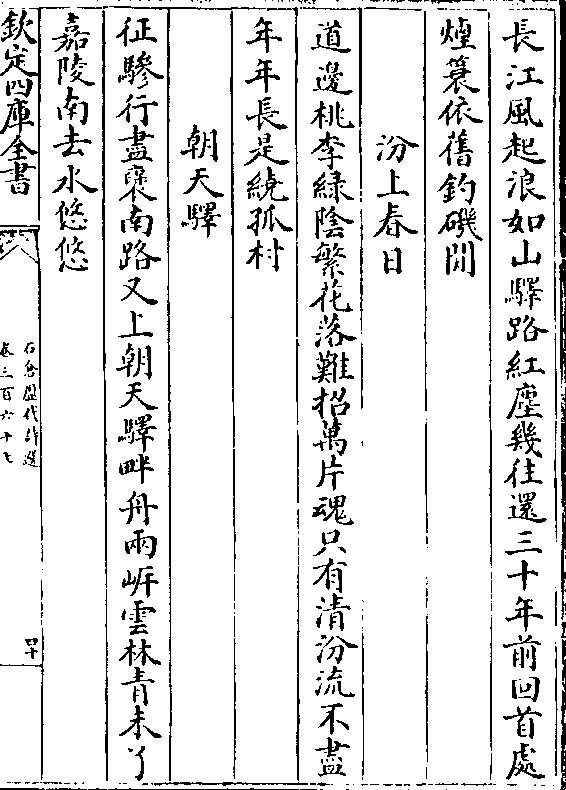 長江風起浪如山驛路紅塵幾往還三十年前回首處
煙蓑依舊釣磯閒
汾上春日
道邊桃李緑陰繁花落難招萬片魂只有清汾流不盡
年年長是繞孤村
朝天驛
征驂行盡褒南路又上朝天驛畔舟兩㟁雲林青未了
嘉陵南去水悠悠
欽定四庫全書
石倉歷代詩選
卷三百六十七
四十